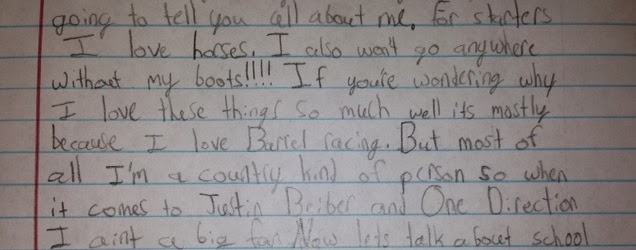 going to tell you all about me. For starters
I love horses. I also won't go anywhere
without my boots!!!! If you're wondering why
I love these things so much well its mostly
because I love Barrel racing. But most of
all I'm a country kind of person so when
it comes to Justin Briber and One Direction
I aint a big fan. Now lets talk about school